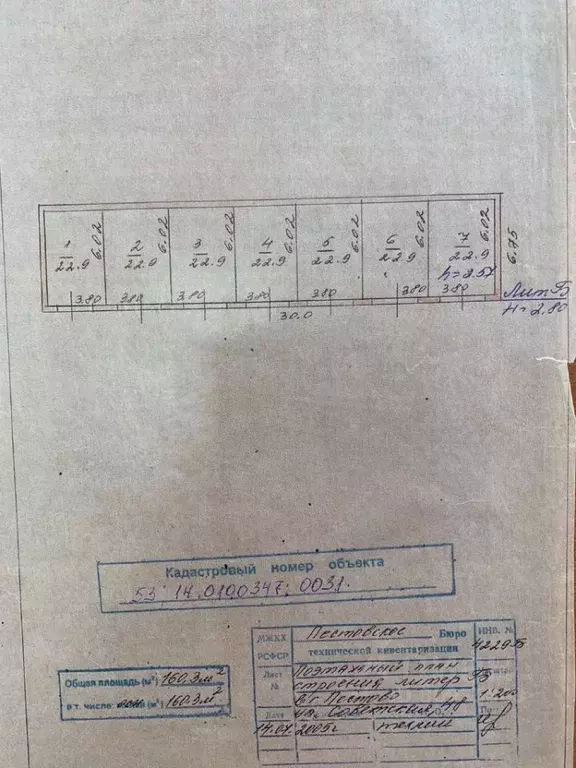 1 2 3 4 5 6 7
22.9 22.9 22.9 22.9 22.9 22.9 22.9
6.02 6.02 6.02 6.02 6.02 6.02 6.02
6.75
h=2.57
3.80 3.80 3.80 3.80 3.80 3.80 3.80
Лит Б
30.0
H=2.80
Кадастровый номер объекта
53:14:0100347:0031
МЖКХ Пестовское Бюро ИНВ. №
РСФСР технической инвентаризации 4229Б
Лист Поэтажный план
№ строения литер Б
в г. Пестово 1:200
Дата ул. Советская
14.01.2005г техник
Общая площадь (м²) 160,3 м²
в т. числе: осн (м²) 160.3 м²